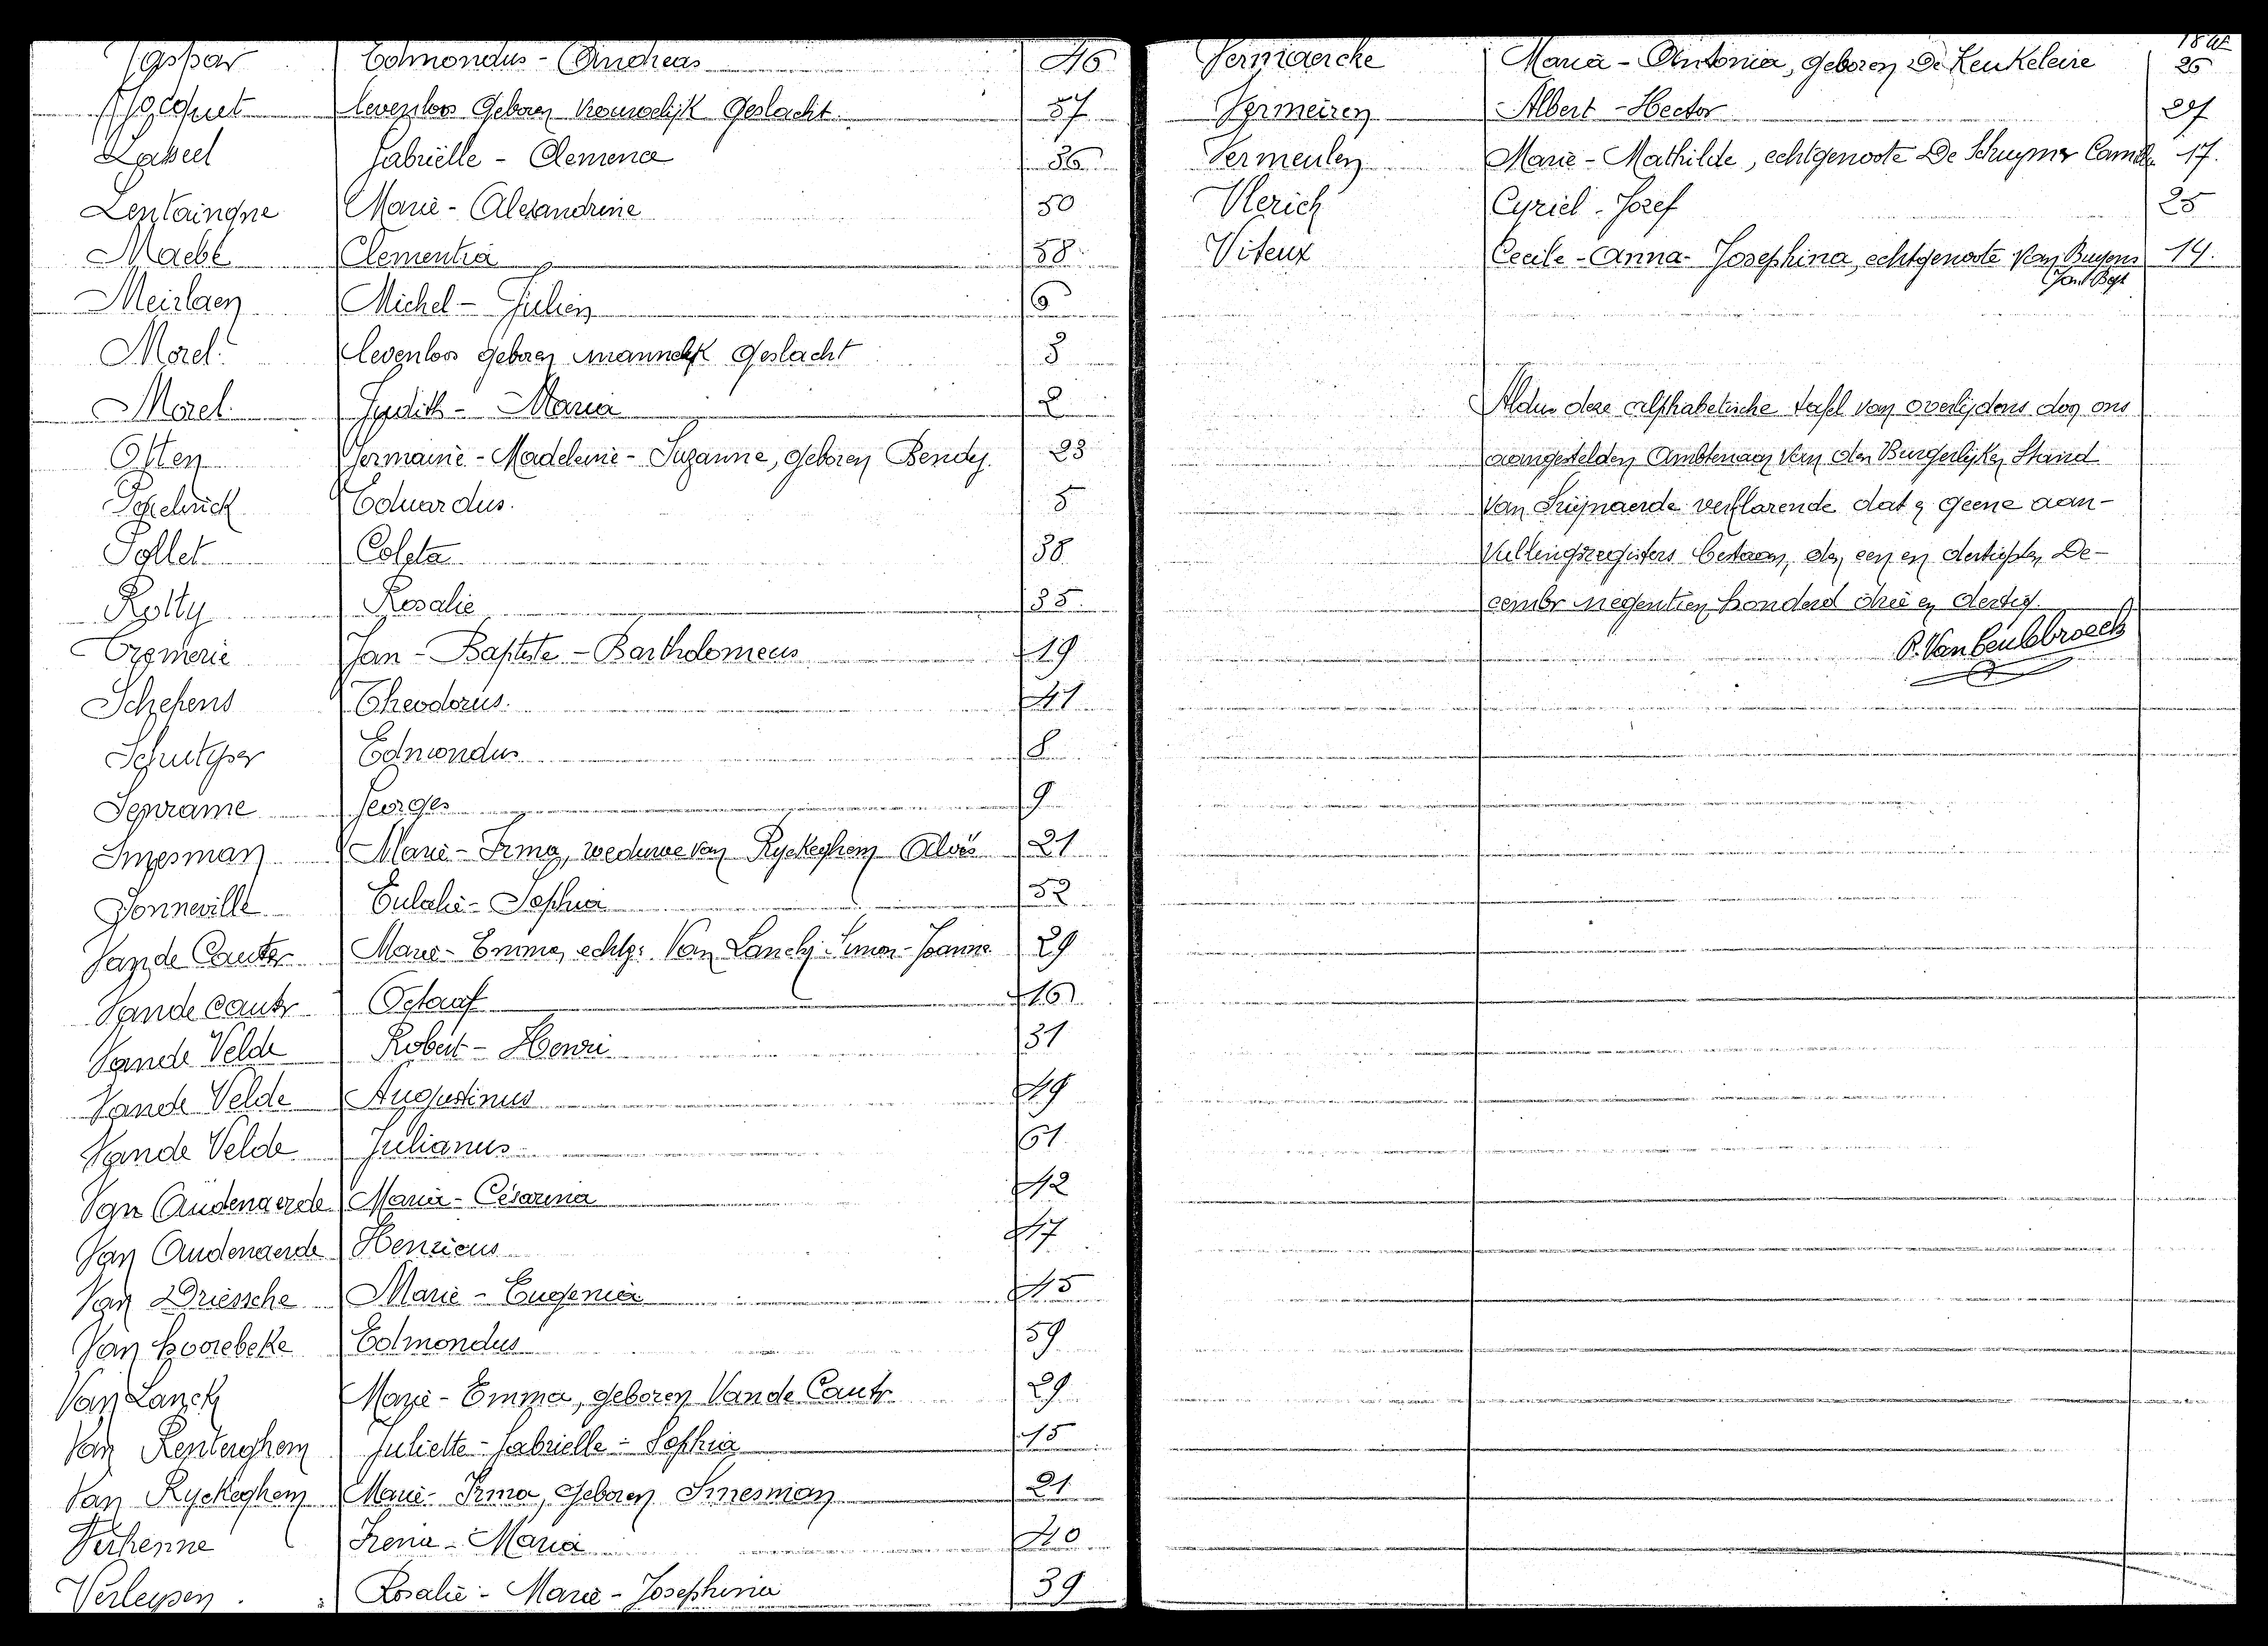 Gaspar Edmondus - Andreas 46
Hocquet levenloos geboren vrouwelijk geslacht. 57
Gabriëlle - Clemence 36
Lentaingne Marie - Alexandrine 50
Maebe Clementia 58
Meirlaen Michel - Julien 6
Morel levenloos geboren mannelijk geslacht 3
Morel Judith - Maria 2
Often Germaine - Madeleine - Suzanne, geboren Bendy. 23
Eduardus. 5
Pollet Coleta 38
Rotty Rosalie 35.
Jan - Baptiste - Bartholomeus 19
Schepens Theodorus. 41
Edmondus 8
Seprame Georges 9
Smesman Marie - Irma, weduwe van Ryckeghem Aloïs 21
Sonneville Eulalie - Sophia 52
Van de Cauter Marie - Emma, echtg. Van Lancker Simon - Joannes 29
Van de Cauter Octaaf 16
Van de Velde Robert - Henri 31
Van de Velde Augustinus 49
Van de Velde Julianus 51
Van Audenaerde Maria - Césarina 42
Van Audenaerde Henricus 47
Van Driessche Marie - Eugenia 45
Van Hoorebeke Edmondus 59
Van Lancker Marie - Emma, geboren Van de Cauter 29
Van Renterghem Juliette - Gabrielle - Sophia 15
Van Ryckeghem Marie - Irma, geboren Smesman 21
Verhenne Irena - Maria 40
Verleysen. Rosalie - Marie - Josephina 39
Vermaercke Maria - Antonia, geboren De Keukeleire 26
Vermeiren Albert - Hector 27
Vermeulen Marie - Mathilde, echtgenoote De Schuymer Camille 17.
Vlerich Cyriel - Jozef 25
Viteux Cecile - Anna - Josephina, echtgenoote Van Buysens 14.
Joul Bapt
Aldus deze alphabetische tafel van overlijdens door ons
aangestelden Ambtenaar van den Burgerlijken Stand
van Swijnaerde verklarende dat er geene aan-
vullingsregisters bestaan, den een en dertigsten De-
cember negentien honderd drie en dertig.
P. Van Ceulebroeck